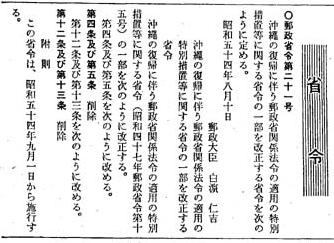 省令
〇郵政省令第二十一号
沖縄の復帰に伴う郵政省関係法令の適用の特別
措置等に関する省令の一部を改正する省令を次の
ように定める。
昭和五十四年八月十日
郵政大臣　白濱　仁吉
沖縄の復帰に伴う郵政省関係法令の適用の
特別措置等に関する省令の一部を改正する
省令
沖縄の復帰に伴う郵政省関係法令の適用の特別
措置等に関する省令（昭和四十七年郵政省令第十
五号）の一部を次のように改正する。
第四条及び第五条を次のように改める。
第四条及び第五条　削除
第十二条及び第十三条を次のように改める。
第十二条及び第十三条　削除
附　則
この省令は、昭和五十四年九月一日から施行す
る。